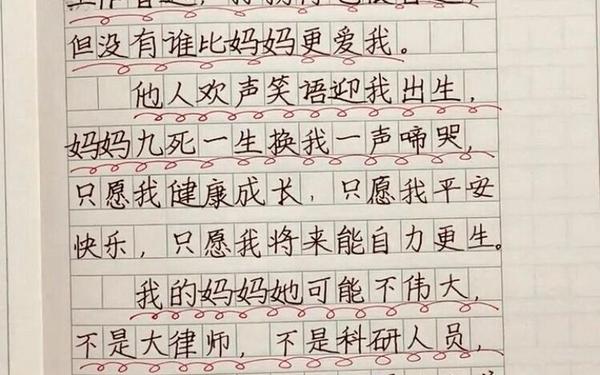 但没有谁比妈妈更爱我。
他人欢声笑语迎我出生,
妈妈九死一生换我一声啼哭,
只愿我健康成长,只愿我平安
快乐,只愿我将来能自力更生。
我的妈妈她可能不伟大,
不是大律师,不是科研人员,